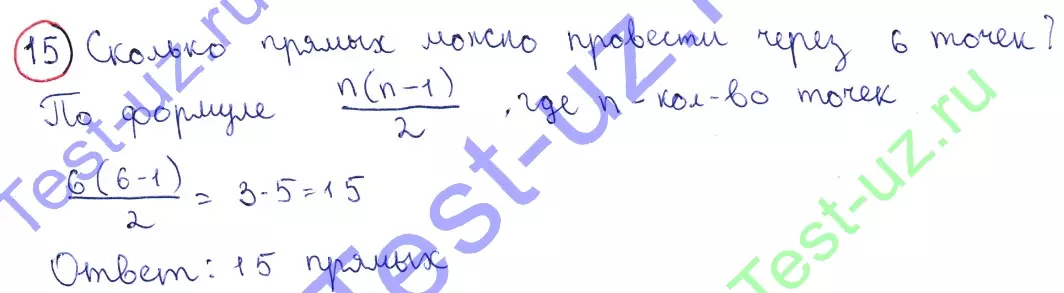 15 Сколько прямых можно провести через 6 точек?
По формуле n(n-1)/2, где n - кол-во точек
6(6-1)/2 = 3·5=15
Ответ: 15 прямых
Test-uz.ru
Test-uz.ru
Test-uz.ru